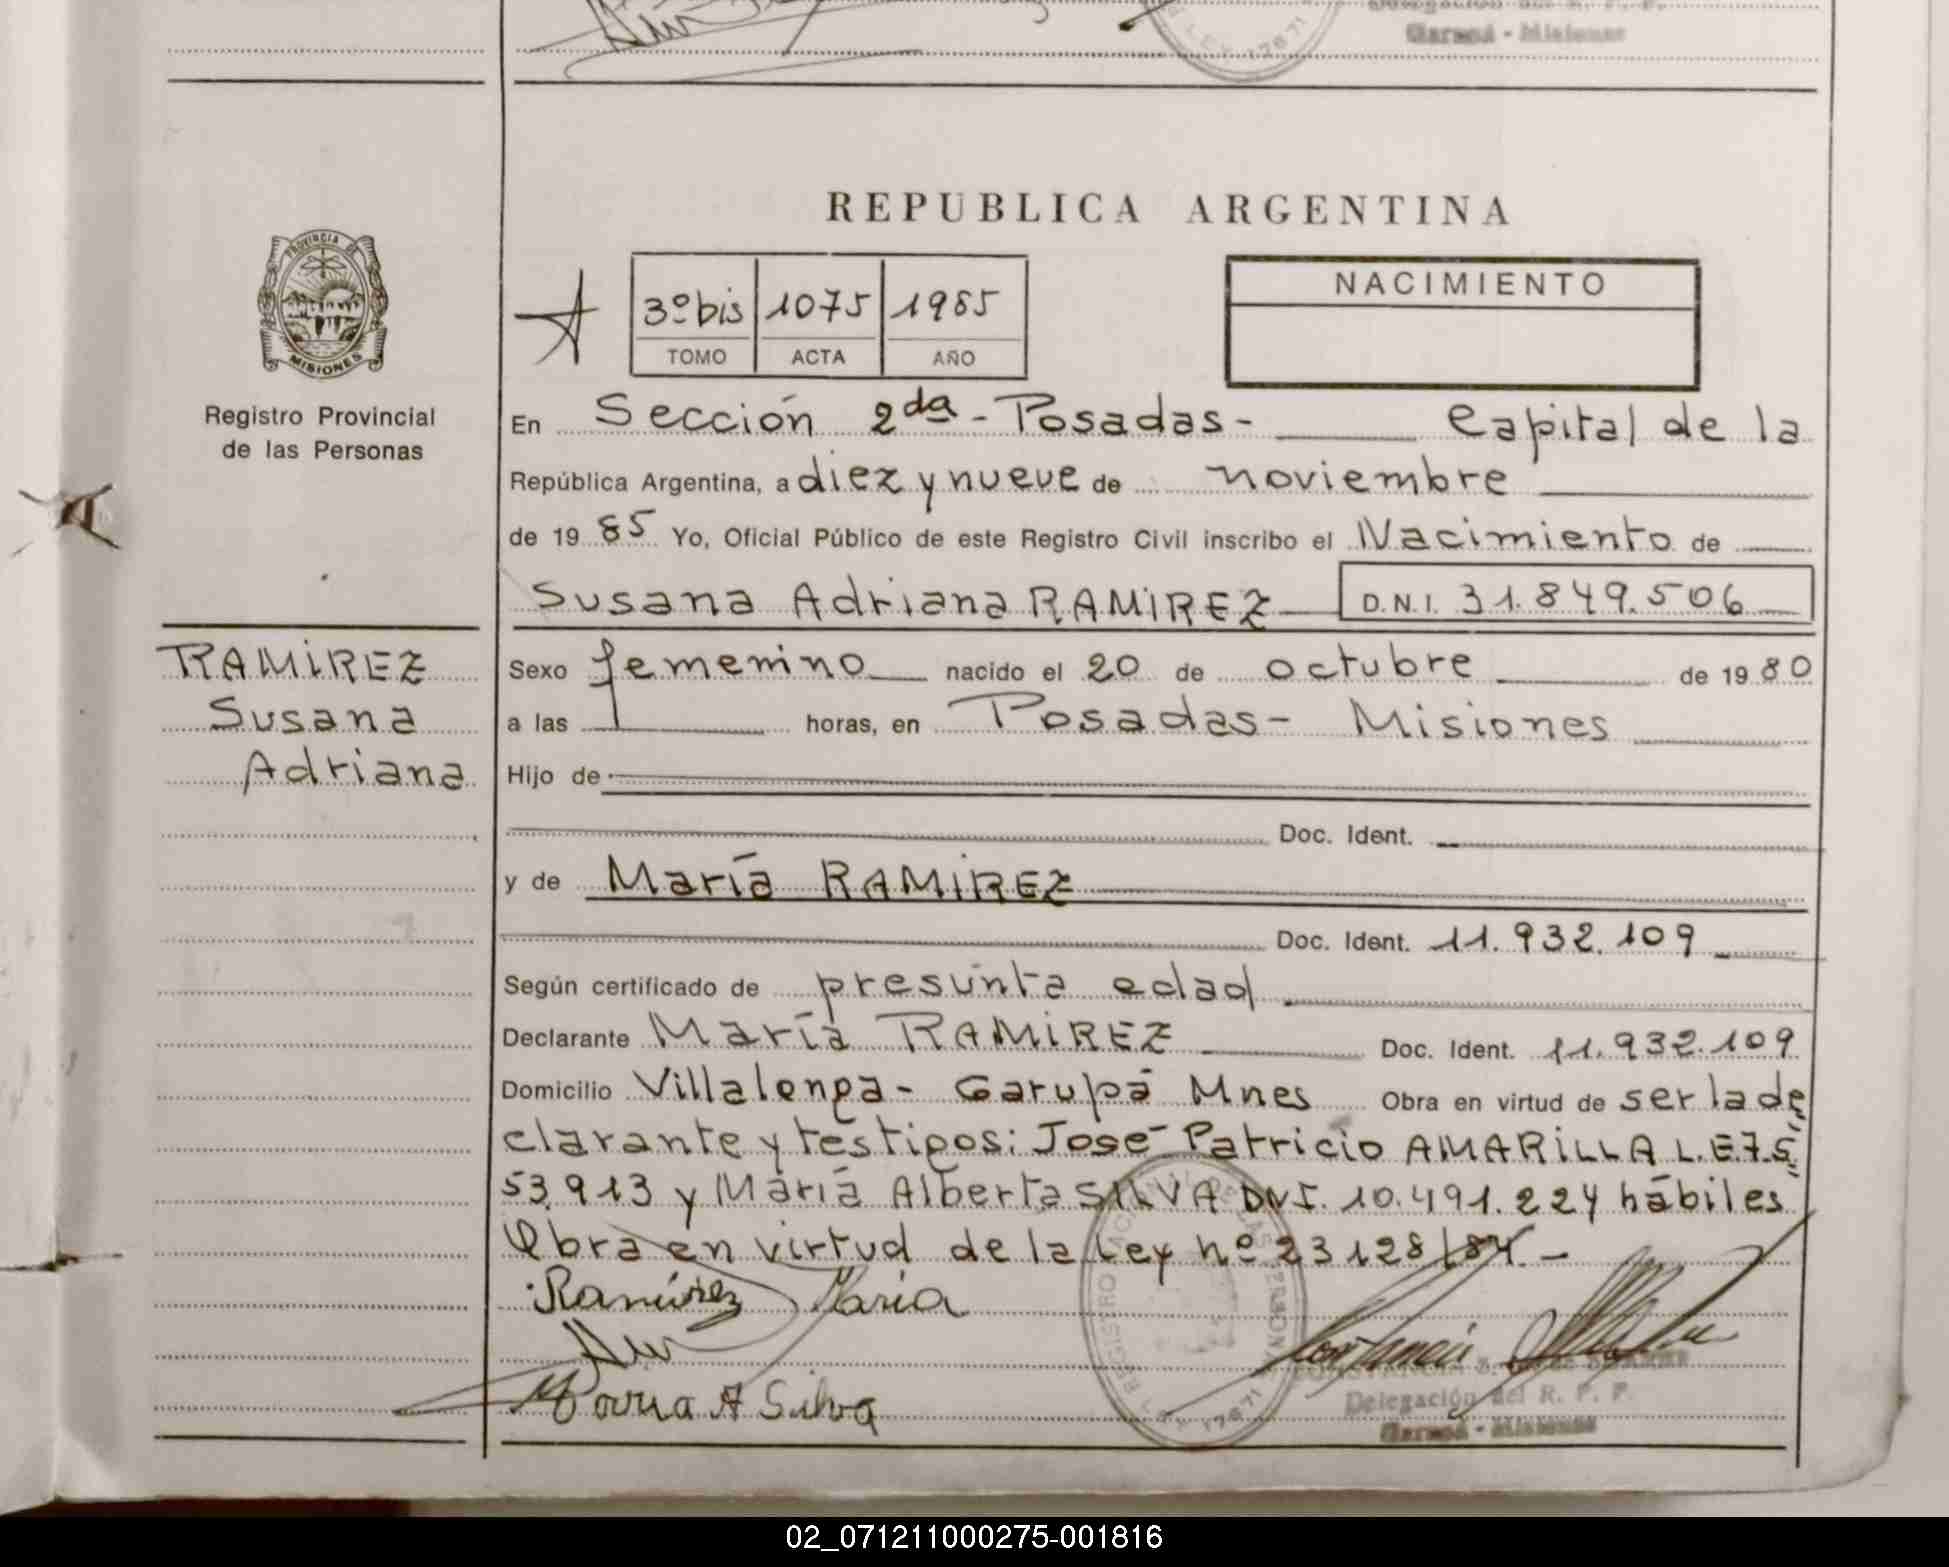 Garupá - Misiones
REPUBLICA ARGENTINA
PROVINCIA DE
MISIONES
Registro Provincial
de las Personas
3º bis 1075 1985
TOMO ACTA AÑO
NACIMIENTO
En Sección 2da - Posadas - Capital de la
República Argentina, a diez y nueve de noviembre
de 19 85 Yo, Oficial Público de este Registro Civil inscribo el Nacimiento de
Susana Adriana RAMIREZ D.N.I. 31.849.506
RAMIREZ
Susana
Adriana
Sexo femenino nacido el 20 de octubre de 19 80
a las horas, en Posadas - Misiones
Hijo de
Doc. Ident.
y de María RAMIREZ
Doc. Ident. 11.932.109
Según certificado de presunta edad
Declarante María RAMIREZ Doc. Ident. 11.932.109
Domicilio Villalonga - Garupá Mnes Obra en virtud de ser la de
clarante y testigos: José Patricio AMARILLA L.E 7.5
53.913 y María Alberta SILVA DNI. 10.491.224 hábiles
Obra en virtud de la Ley nº 23128/84.-
Ramírez María
Maria A Silva
Delegación del R. P. P.
Garupá - Misiones
02_071211000275-001816